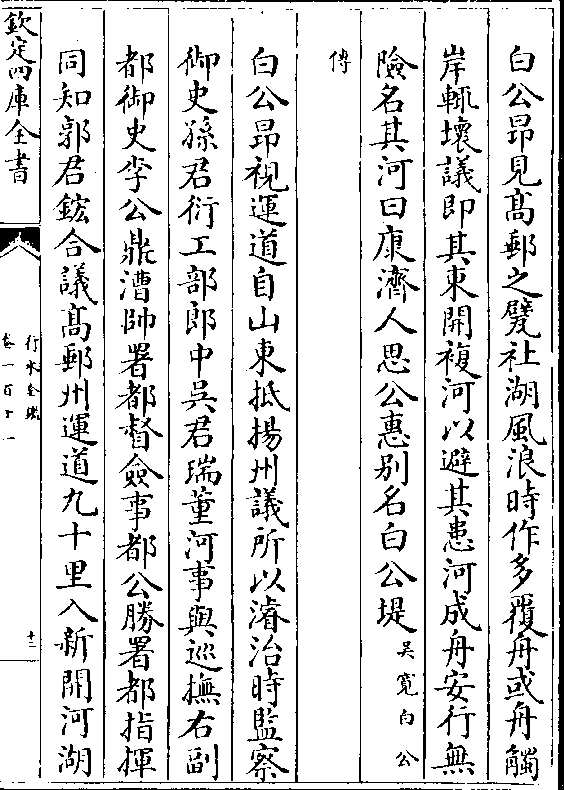 白公昂見髙郵之甓社湖風浪時作多覆舟或舟觸
岸輒壞議即其東開複河以避其患河成舟安行無
險名其河曰康濟人思公惠别名白公堤吳寛白公
傳
白公昂視運道自山東抵揚州議所以濬治時監察
御史孫君衍工部郎中吳君瑞董河事與巡撫右副
都御史李公鼎漕帥署都督僉事都公勝署都指揮
同知郭君鋐合議髙郵州運道九十里入新開河湖
欽定四庫全書
行水金鑑
卷一百十一
十三